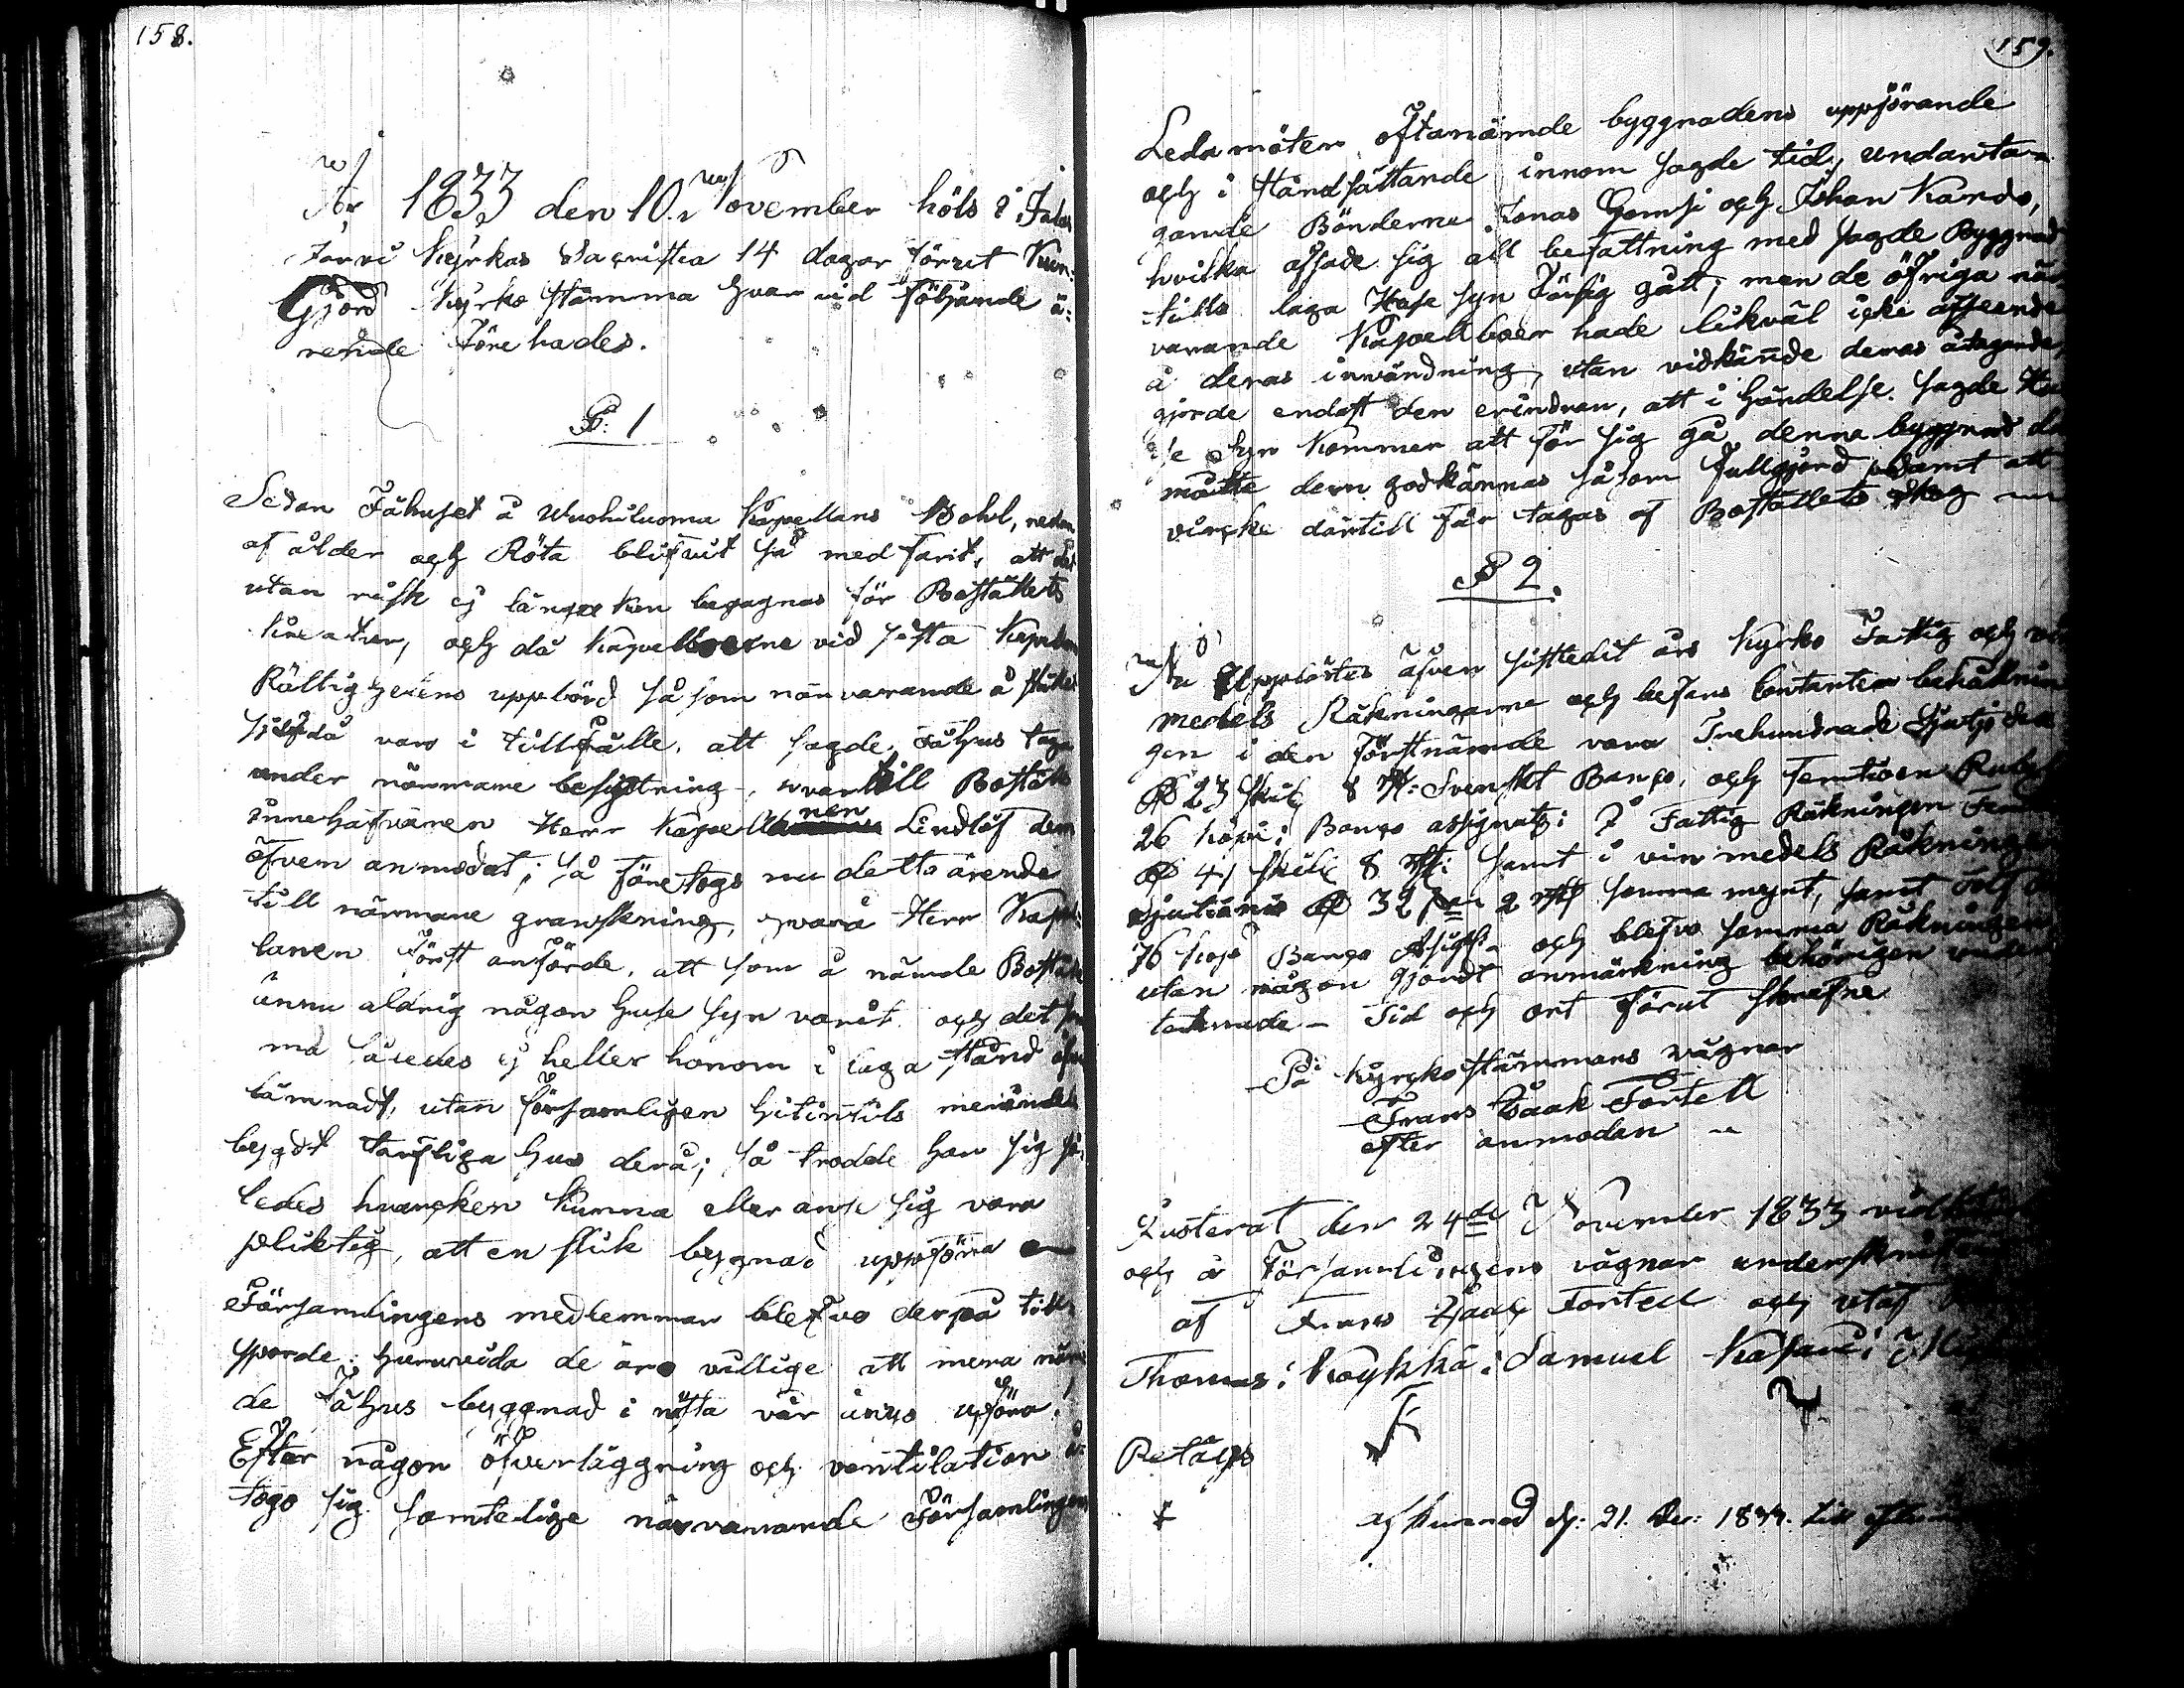 158.
År 1833 den 10. November höls i Jalas
Järvi Kyrkas Sacristia 14 dagar förut Kun:
Gjord Kyrko Stämma hvar vid följande ä:
rende Före hades.
§: 1
Sedan Fähuset å Wuohiluoma Kapellans Bohl, redan
af ålder och Röta blifvit så med farit, att det
utan risk ej längre kan begagnas för Boställets
kreatur, och då Kapellboerne vid sista
Rättighetens uppbörd såsom närvarande å stället
sjelfva voro i tillfälle, att sagde Fähus taga
under närmare besigtning, hvartill Boställs
innehafvaren Herr Kapellanen Lindlöf dem
äfven anmodat; Så företogs nu detta ärende
till närmare granskning, hvarå Herr Kapel:
lanen Först anförde, att som å nämde Boställe
ännu aldrig någon huse syn varit och det
må således ej heller honom i laga stånd
lämnadt, utan församligen hitintils
bygdt tarfliga hus derå; så trodde han sig så:
ledes hvarcken kunna eller anse sig vara
pliktig, att en slik bygnad uppföra
Församlingens medlemmar blefvo derpå till:
sporde: huruvida de äro villige att mera
de Fähus byggnad i nästa vår
Efter någon öfverläggning och ventilation å:
togo sig samtelige närvarande Församlingens
159.
Ledamöter oftanämde byggnadens uppförande
och i ståndsättande innom sagde tid, undanta-
gande Bönderne Jonas Gomsi och Johan Kando,
hvilka afsade sig all befattning med sagde Byggnad
tills laga Huse syn försig gått; men de öfriga när
varande Kapellboer hade likväl icke afseende
å deras invändning, utan vidkände deras åtagande,
gjorde endast den erindran, att i händelse sagde Hu
se Syn kommer att för sig gå denna byggnad då
måtte dem godkännas såsom fullgjord samt att
vircke dertill får tagas af Boställets skog
§ 2.
Nu Upplästes äfven sistledit års Kyrko Fattig och vin
medels Räkningarne och befans Contanten behållnin
gen i den Förstnämde vara Trehundrade Sjutio
23 skil 8 Svenskt Banco, och femtioen Rubel
26 kopi: Banco assignat: I Fattig Räkningen
41 skil 8 samt i vin medels Räkningen
32 2 samma mynt, samt
76 kop Banco och blefvo samma Räkningen
utan någon gjordt anmärkning behörigen under
tecknade – Tid och ort Förut skrefne
På kyrckostämmans vägnar
Frans Isaak Fortell
efter anmodan
Justerat den 24de November 1833
och å Församlingens vägnar underskrifven
af Frans Isaac Fortell och utaf
Thomas: Koykkä: Samuel
Retäys
afkunnad d: 21. Dec: 1833. till